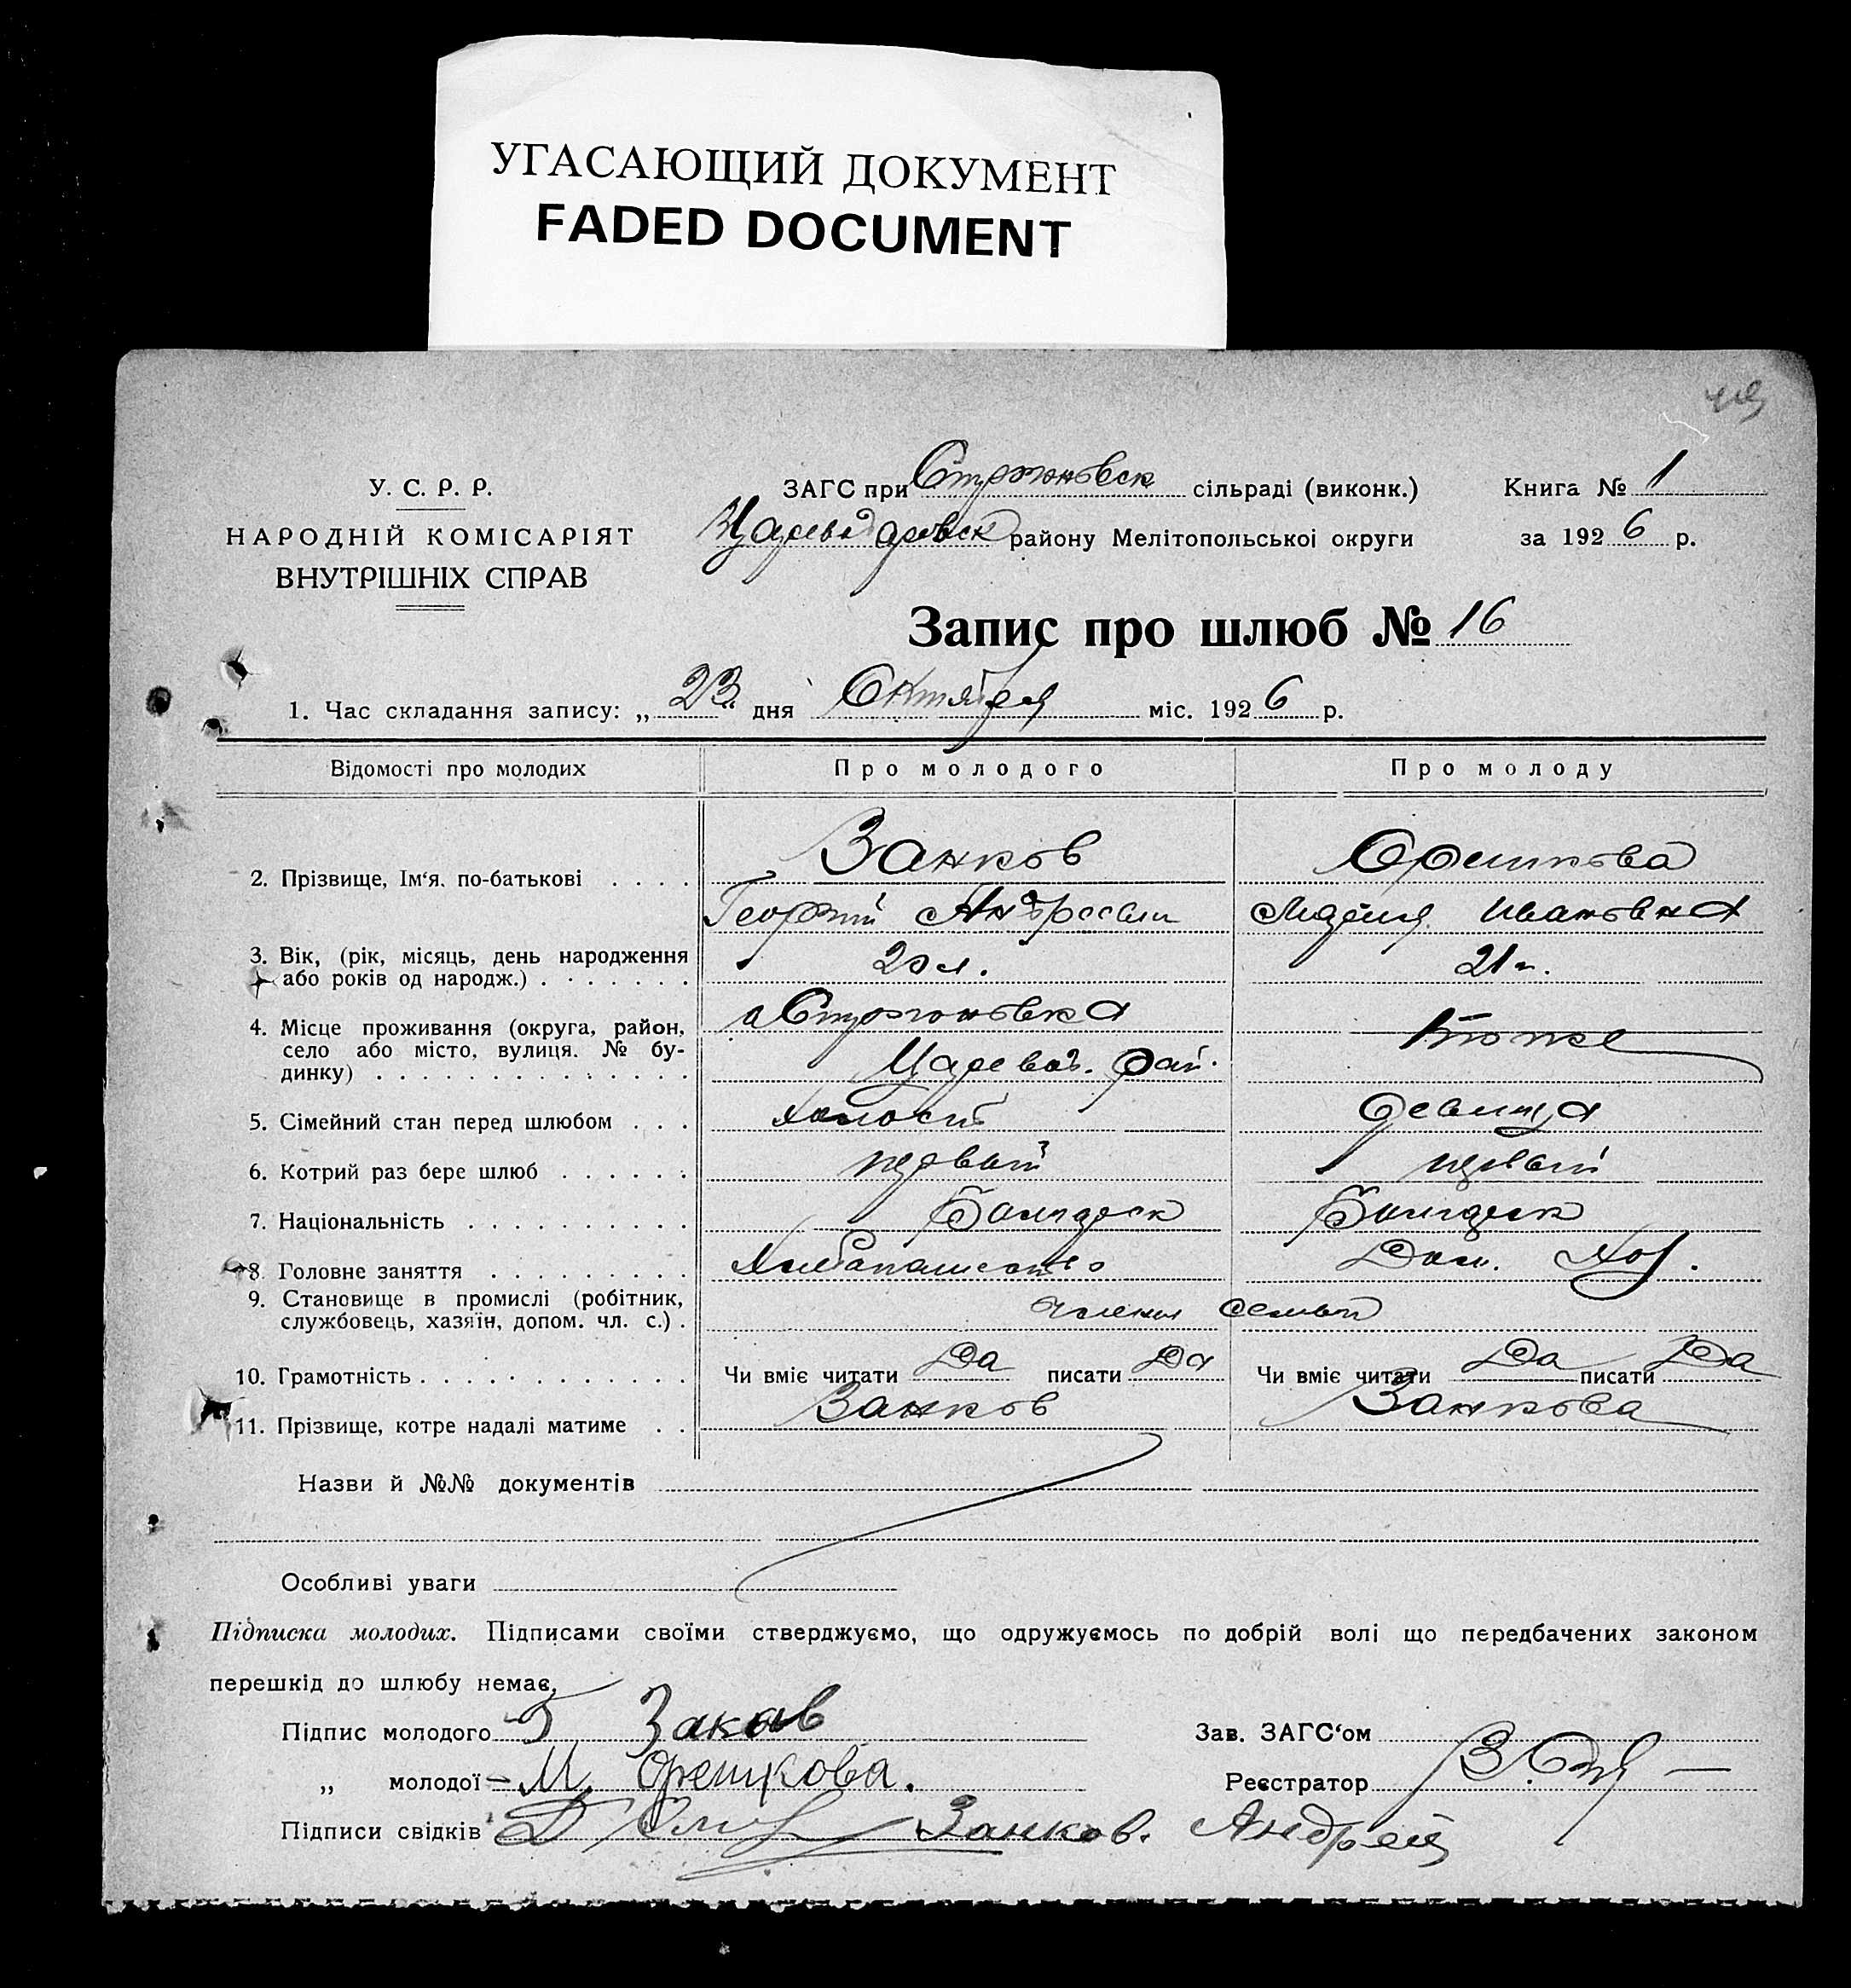 УГАСАЮЩИЙ ДОКУМЕНТ
FADED DOCUMENT
У. С. Р. Р.
НАРОДНІЙ КОМІСАРІЯТ
ВНУТРІШНІХ СПРАВ
ЗАГС при сільраді (виконк.) Книга № 1
району Мелітопольської округи за 1926 р.
Запис про шлюб № 16
1. Час складання запису: „ 23 “ дня Октября міс. 1926 р.
Відомості про молодих Про молодого Про молоду
2. Прізвище, Ім‘я. по-батькові . . . . Занков Орешкова
Георгий Андреевич Ивановна
3. Вік, (рік, місяць, день народження
або років од народж.) . . . . . . . 20 л. 21 г.
4. Місце проживання (округа, район,
село або місто, вулиця. № бу-
динку) . . . . . . . . . . . . . . Царевод. рай. Тоже
5. Сімейний стан перед шлюбом . . . холост девица
6. Котрий раз бере шлюб . . . . . . первый первый
7. Національність . . . . . . . . . . Болгарск Болгарск
8. Головне заняття . . . . . . . . . Хлебопашество Дом. Хоз.
9. Становище в промислі (робітник,
службовець, хазяїн, допом. чл. с.) . члены семьи
10. Грамотність . . . . . . . . . . . . Чи вміє читати Да писати Да Чи вміє читати Да писати Да
11. Прізвище, котре надалі матиме . . Занков Занкова
Назви й №№ документів
Особливі уваги
Підписка молодих. Підписами своїми стверджуємо, що одружуємось по добрій волі що передбачених законом
перешкід до шлюбу немає,
Підпис молодого Г Закав Зав. ЗАГС‘ом
„ молодої М. Орешкова. Реєстратор
Підписи свідків Занков. Андрей